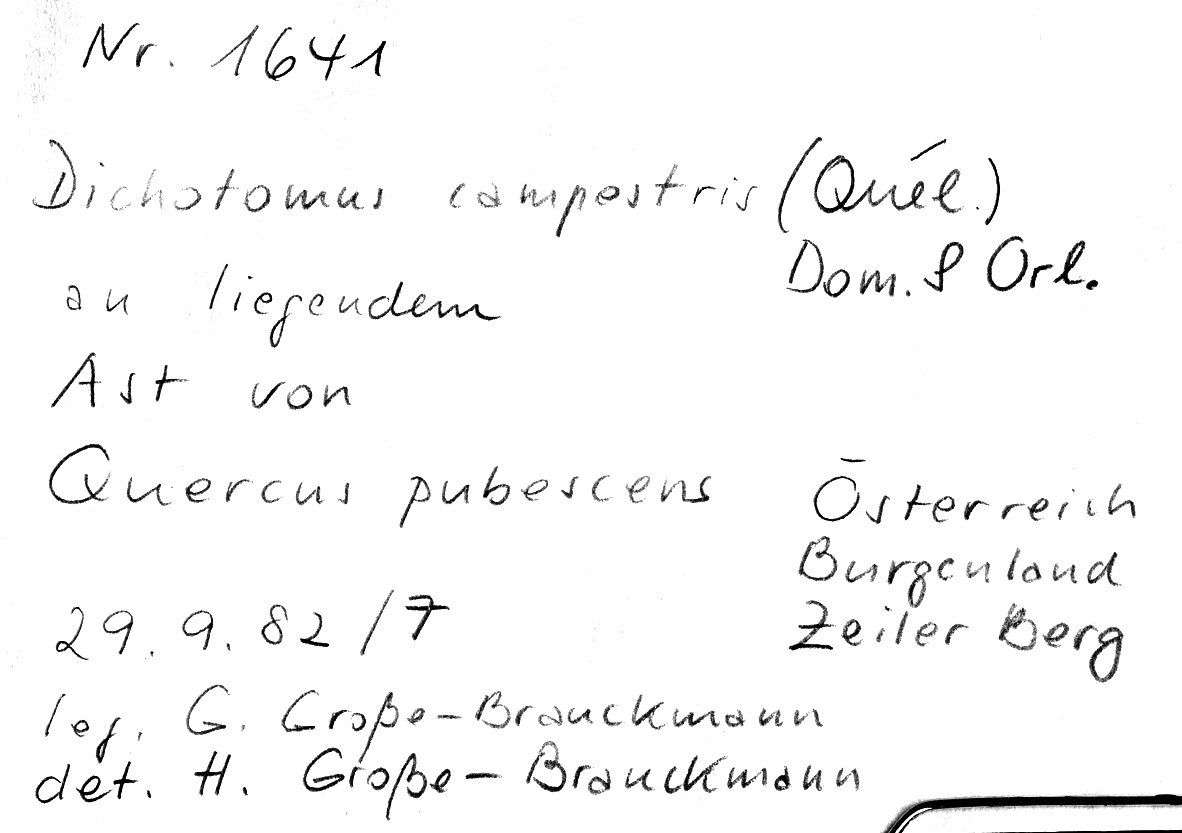 Nr. 1641
Dichotomus campestris (Quél.)
Dom. & Orl.
an liegendem
Ast von
Quercus pubescens
Österreich
Burgenland
Zeiler Berg
29. 9. 82 / 7
leg. G. Große-Brauckmann
det. H. Große-Brauckmann